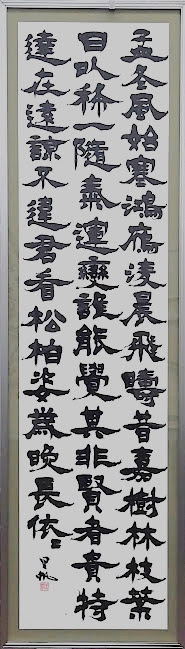 孟冬風始寒鴻鴈凌晨飛疇昔嘉樹林枝葉
日以稀一隨炁運變誰能覺其非賢者貴特
達在遠諒不違君看松柏姿爲晚長依〻